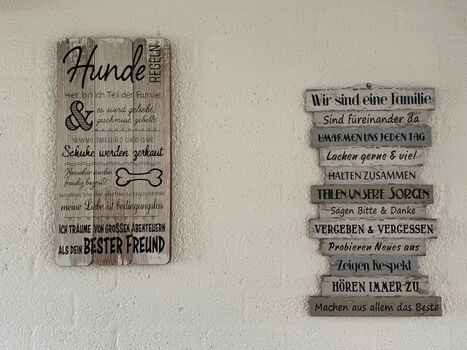 Hunde
REGELN
Hier bin ich Teil der Familie
& es wird geliebt,
gekuschelt, gebellt
Schuhe werden zerkaut
freudig begrüßt
meine Liebe ist bedingungslos
ICH TRÄUME VON GROSSEN ABENTEUERN
ALS DEIN BESTER FREUND
Wir sind eine Familie
Sind füreinander da
UMARMEN UNS JEDEN TAG
Lachen gerne & viel
HALTEN ZUSAMMEN
TEILEN UNSERE SORGEN
Sagen Bitte & Danke
VERGEBEN & VERGESSEN
Probieren Neues aus
Zeigen Respekt
HÖREN IMMER ZU
Machen aus allem das Beste